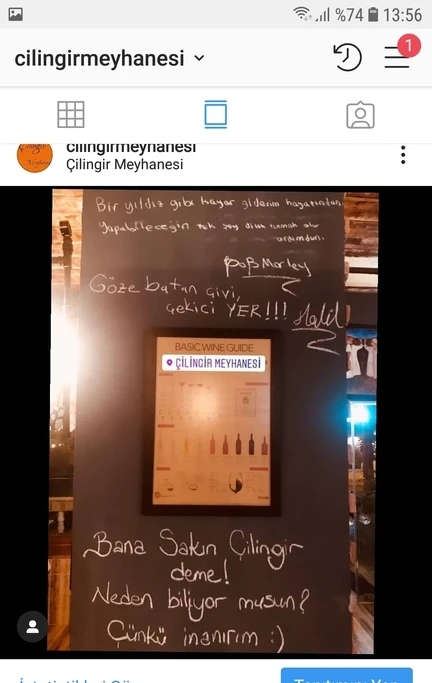 %74 13:56
cilingirmeyhanesi
1
cilingirmeyhanesi
Çilingir Meyhanesi
Bir yıldız gibi kayar giderim hayatından
Yapabileceğin tek şey dilek tutmak olur
ardımdan.
Bob Marley
Göze batan çivi,
çekici YER!!! Halil
BASIC WINE GUIDE
ÇİLİNGİR MEYHANESİ
Bana Sakın Çilingir
deme!
Neden biliyor musun?
Çünkü inanırım :)